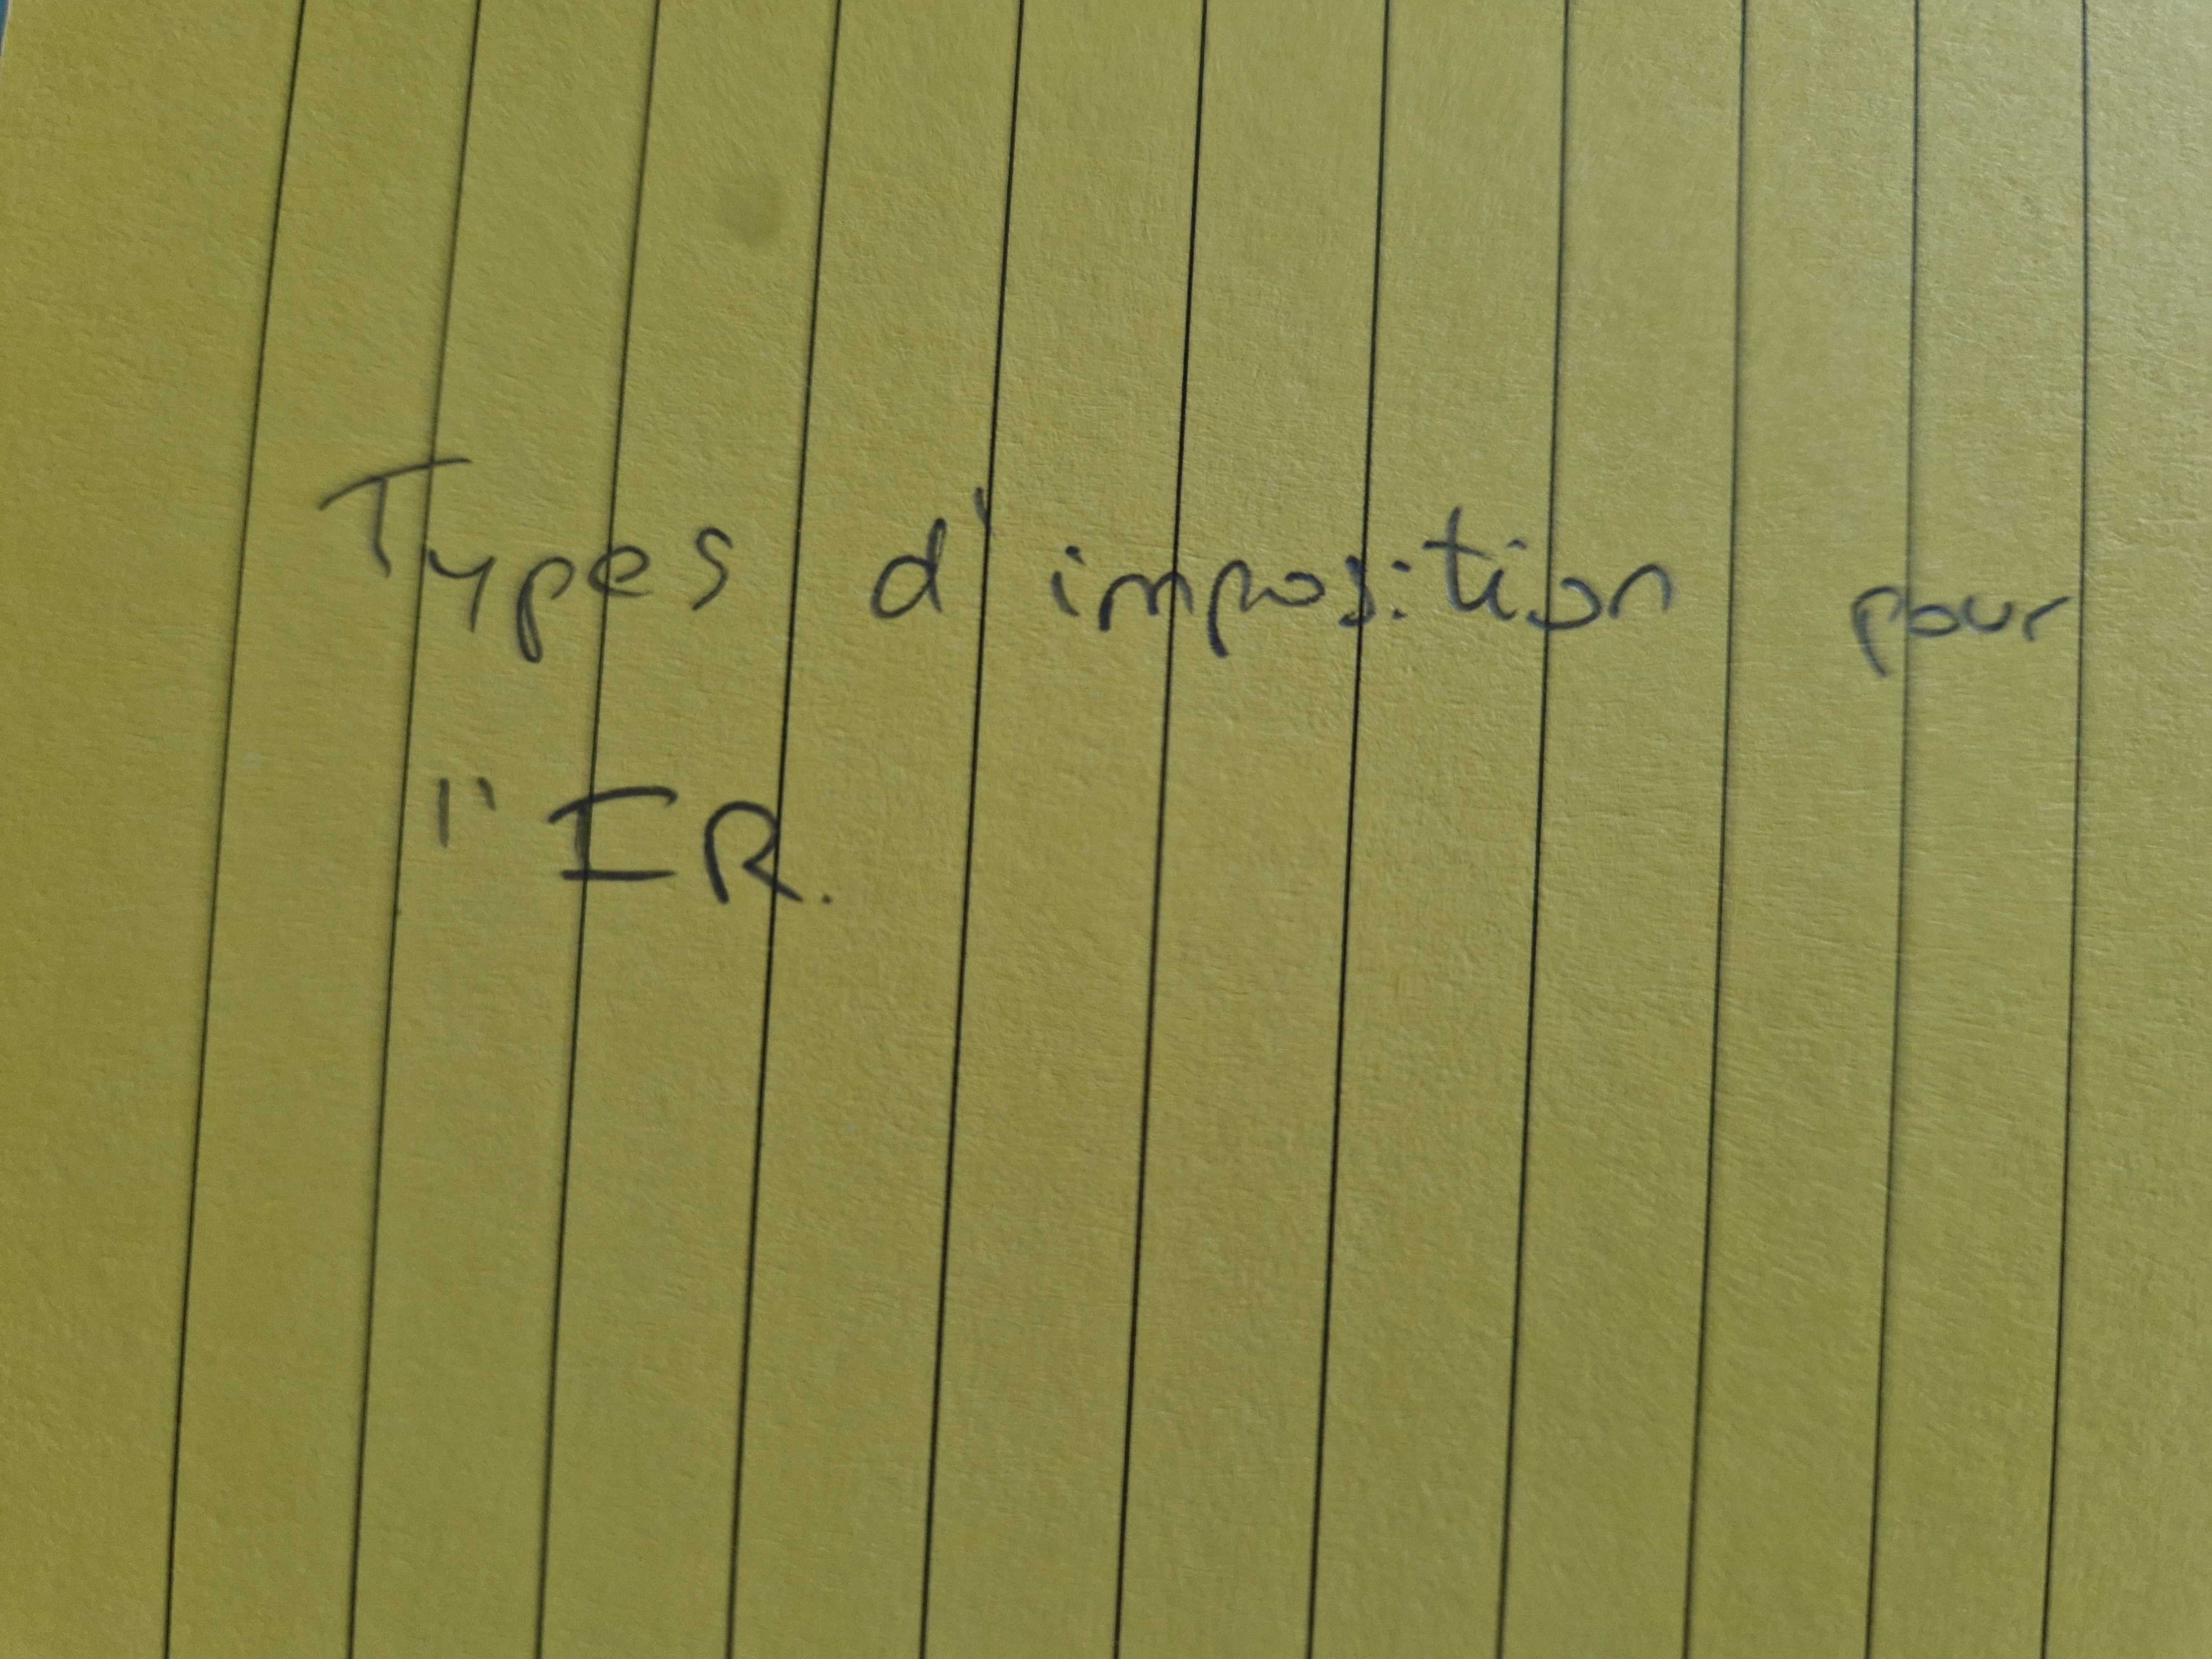 Types d'imposition pour
l'' IR.